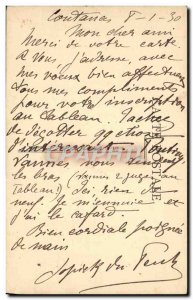 Coutances 8-1-30
Mon cher ami
Merci de votre carte
Je vous adresse, avec
mes vœux bien affectueux
tous mes compliments
pour votre inscription
au tableau. Tachez
de décotter qq chose
d'interessant
Vannes nous tend
les bras (
tableau!) Ici, rien de
neuf. Je m'ennuie et
j'ai le cafard.
Bien cordiale poignée
de main